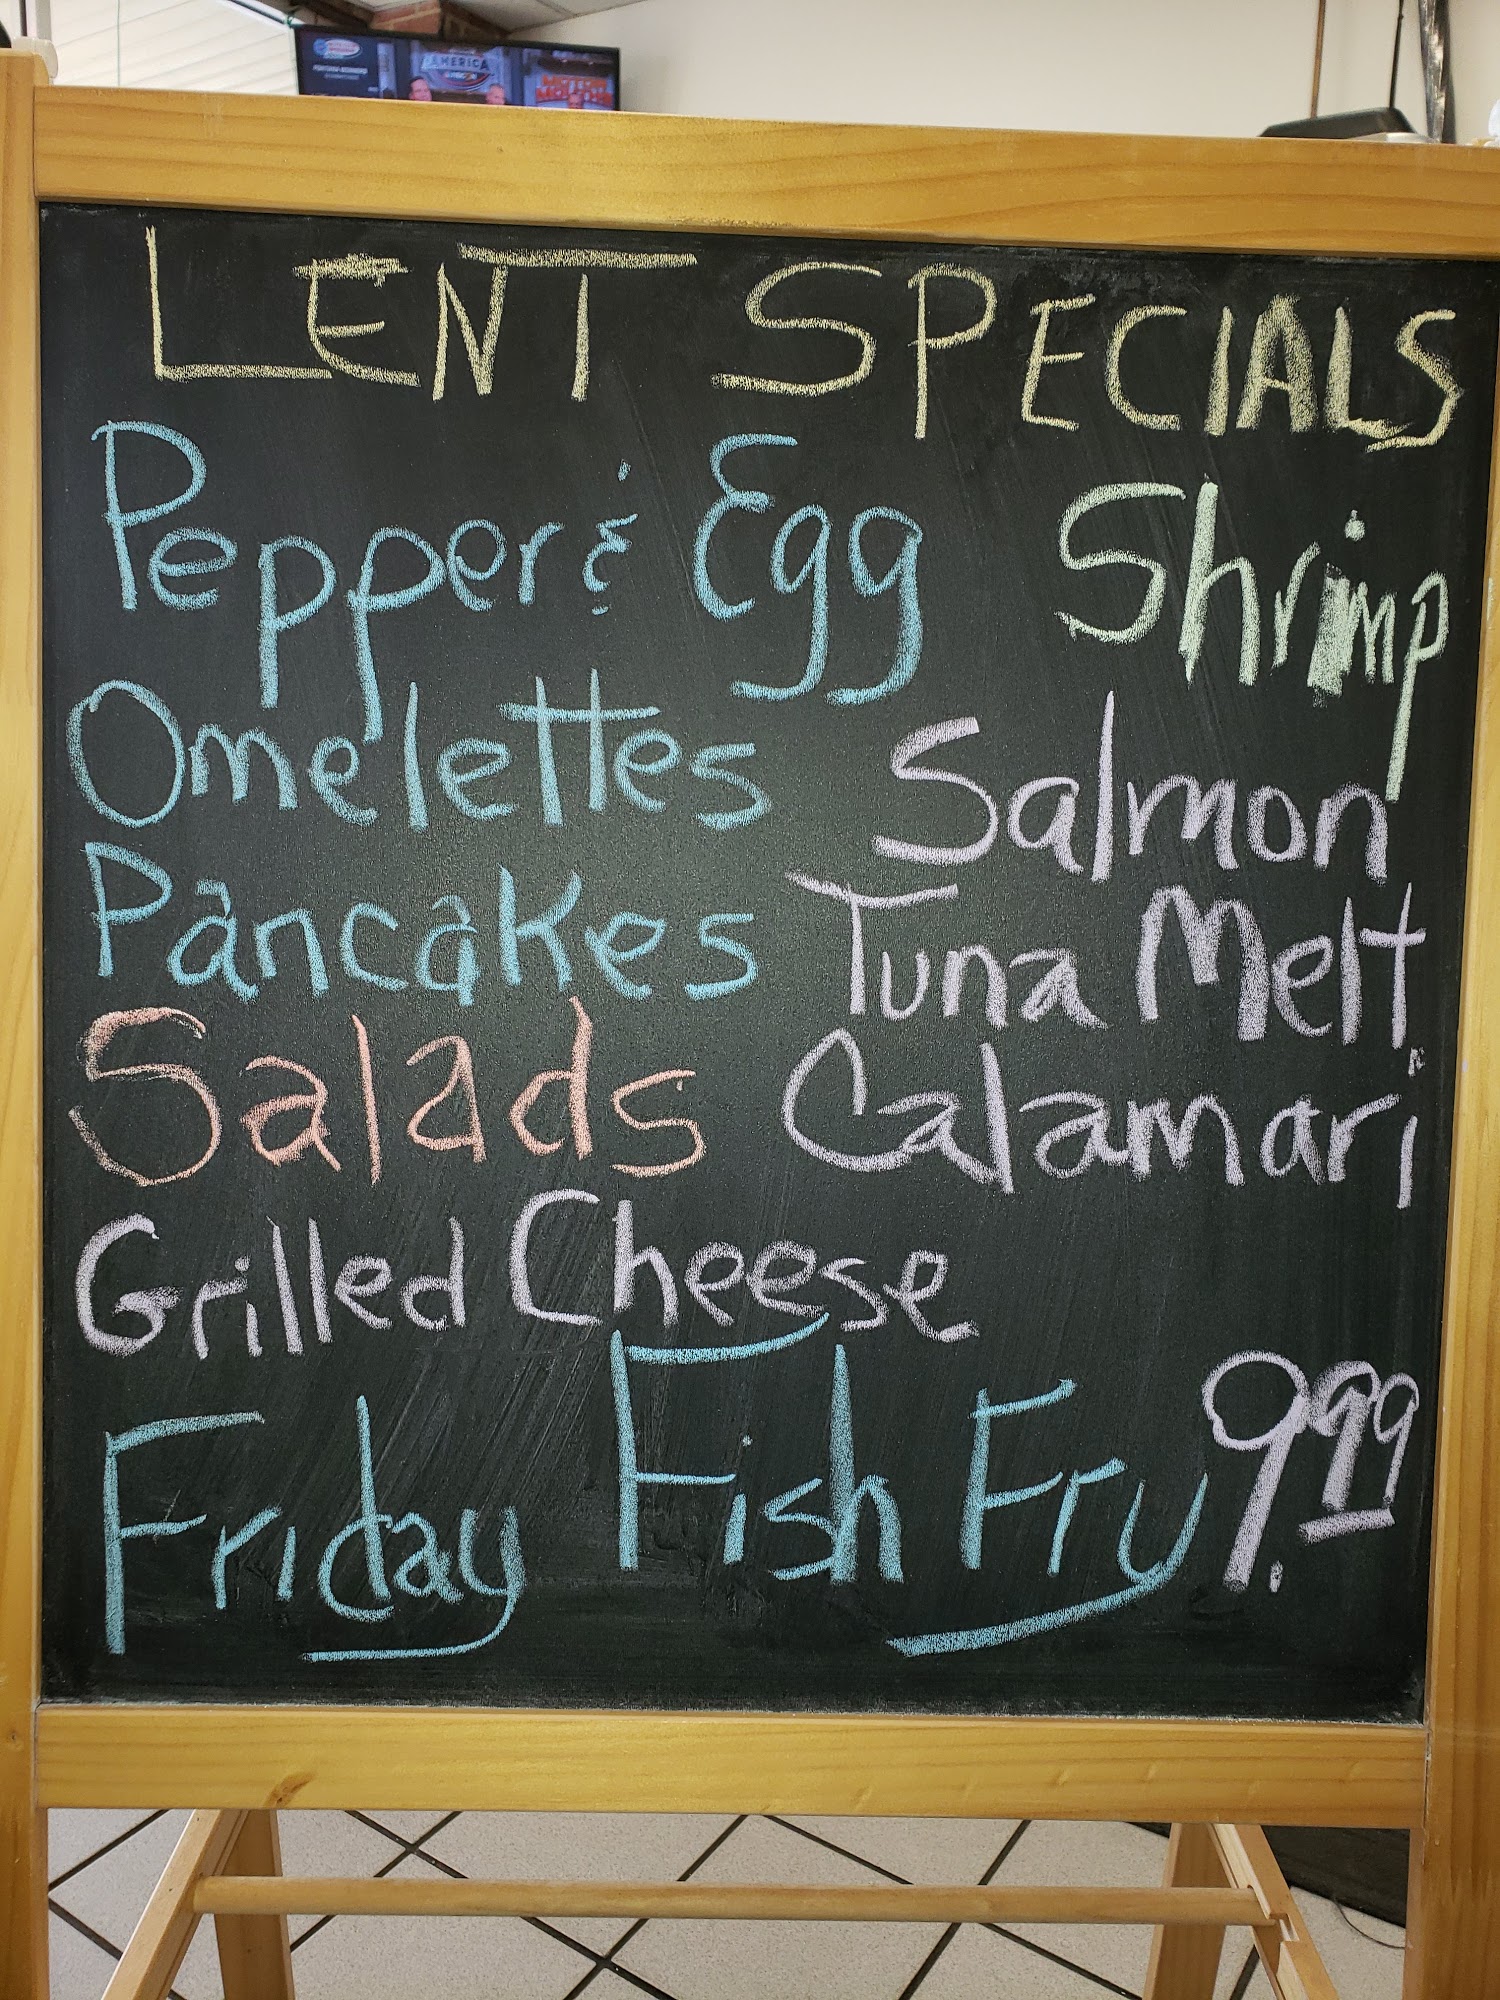 AMERICA
MOTOR
LENT SPECIALS
Pepper & Egg
Shrimp
Omelettes
Salmon
Pancakes
Tuna Melt
Salads
Calamari
Grilled Cheese
Friday Fish Fry 9.99